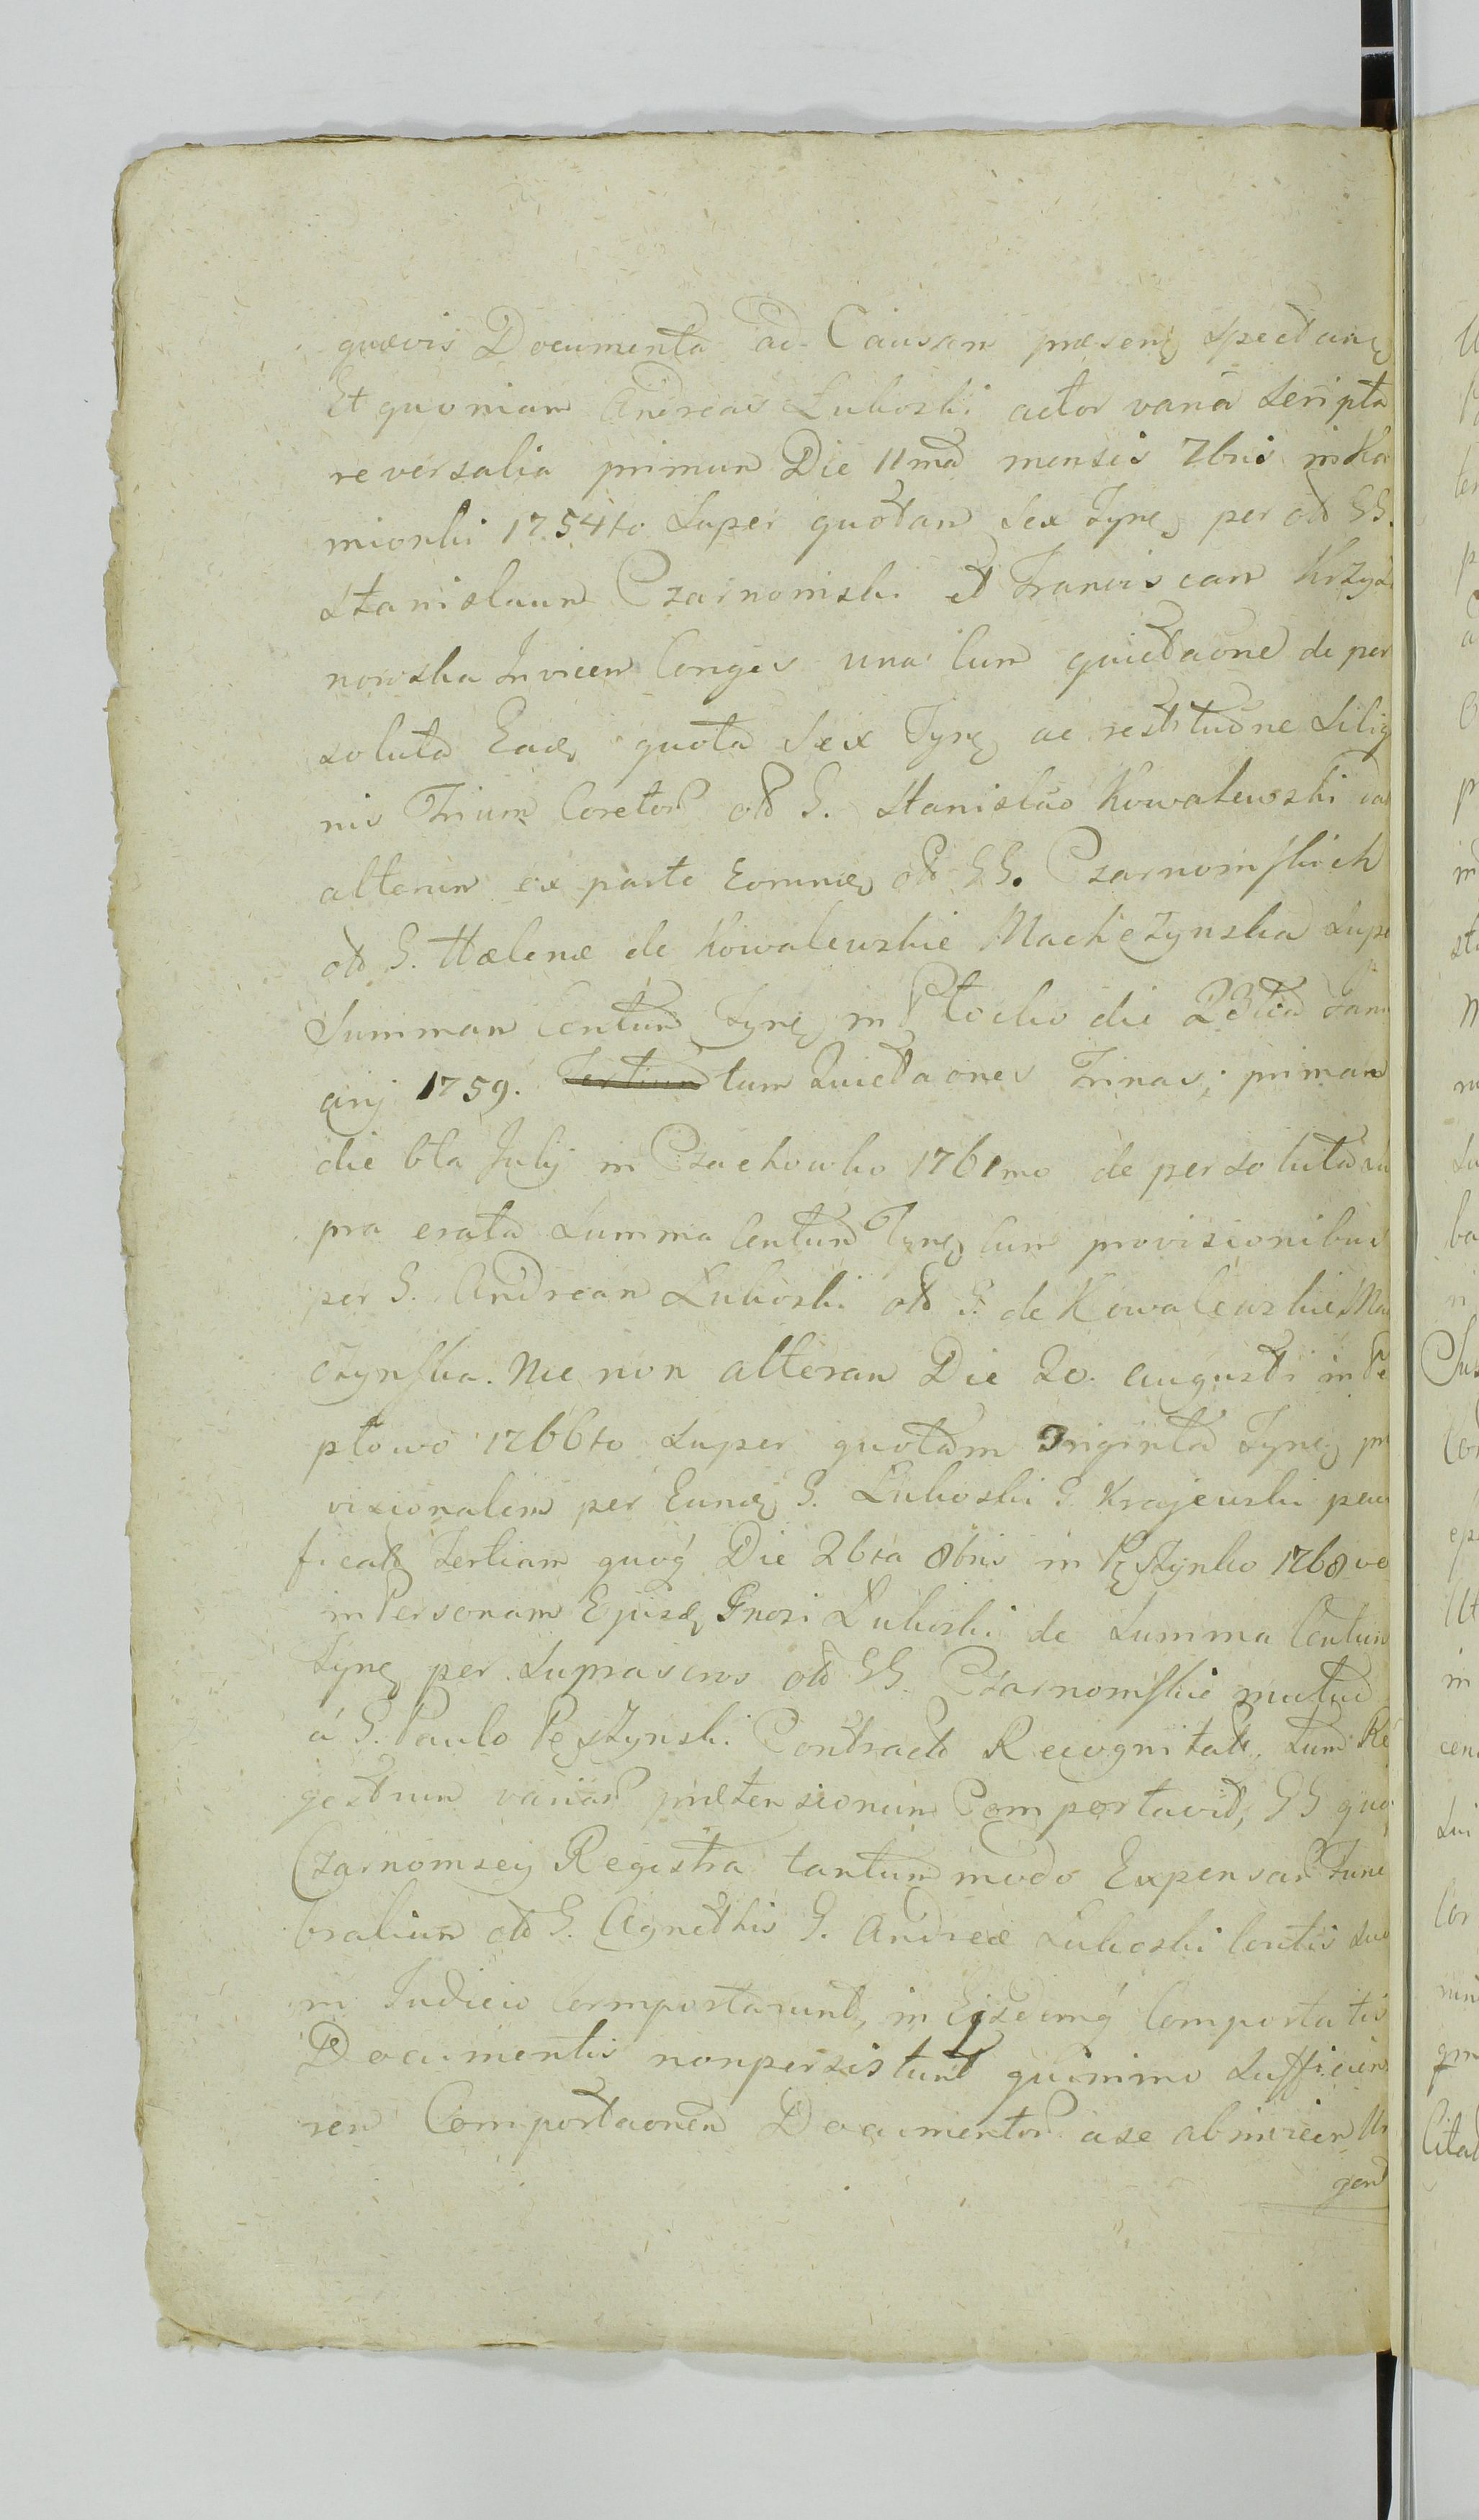 quævis Documenta ad Causam præsenę spectanę
Et quoniam Andreas Luboski actor varia Scripta
reversalia primum Die 11ma mensis 7bris in Ka
mionki 1754to Super quotam Sex Tynę per olƌ GG.
Stanislaum Czarnomski et Franciscam Krzyża
nowska Invicem Conges una cum quietaone de per
soluta Eadę quota Sex Tynę ac restitudne Silig
nis Trium Coretor olƌ G. Stanislao Kowalewski
alterum ex parte Eorundę olƌ GG. Czarnomskich
olƌ G. Hælenæ de Kowalewskie Machczynska Supe
Summam Centum Tynę in Płocko die 23tia Janu
arij 1759. Tertium tum Quietaones Trinas, primam
die 6ta Julij in Czachowko 1761mo de persoluta su
pra erata Summa Centum Tynę cum provisionibus
per G. Andream Luboski olƌ G. de Kowalewskie Mac
czynska. Nec non alteram Die 20. augusti in
ptowo 1766to Super quotam Triginta Tynę pro
visionalem per Eundę G. Luboski G. Krajewski
ficatƌ Tertiam quoq́ Die 26ta 8bris in Pęstynko 1768vo
in Personam Ejusdę Gnosi Luboski de Summa Centum
Tynę per Suprascros olƌ GG. Czarnomskie mutuo
á G. Paulo Pęstynski Contracta Recognitaƌ, tum Re
gestrum variar prætensionum Comportavit, GG quoq
Czarnomscy Regestra tantum modo Expensar Fune
bralium olƌ G. Agnethis G. Andreæ Luboski Contis suæ
in Judicio Comportarunt, in Eisdemq́ Comportatis
Documentis non persistunt quinimo Sufficien
rem Comportaonem Documentor a se abinvicem Ur
gent